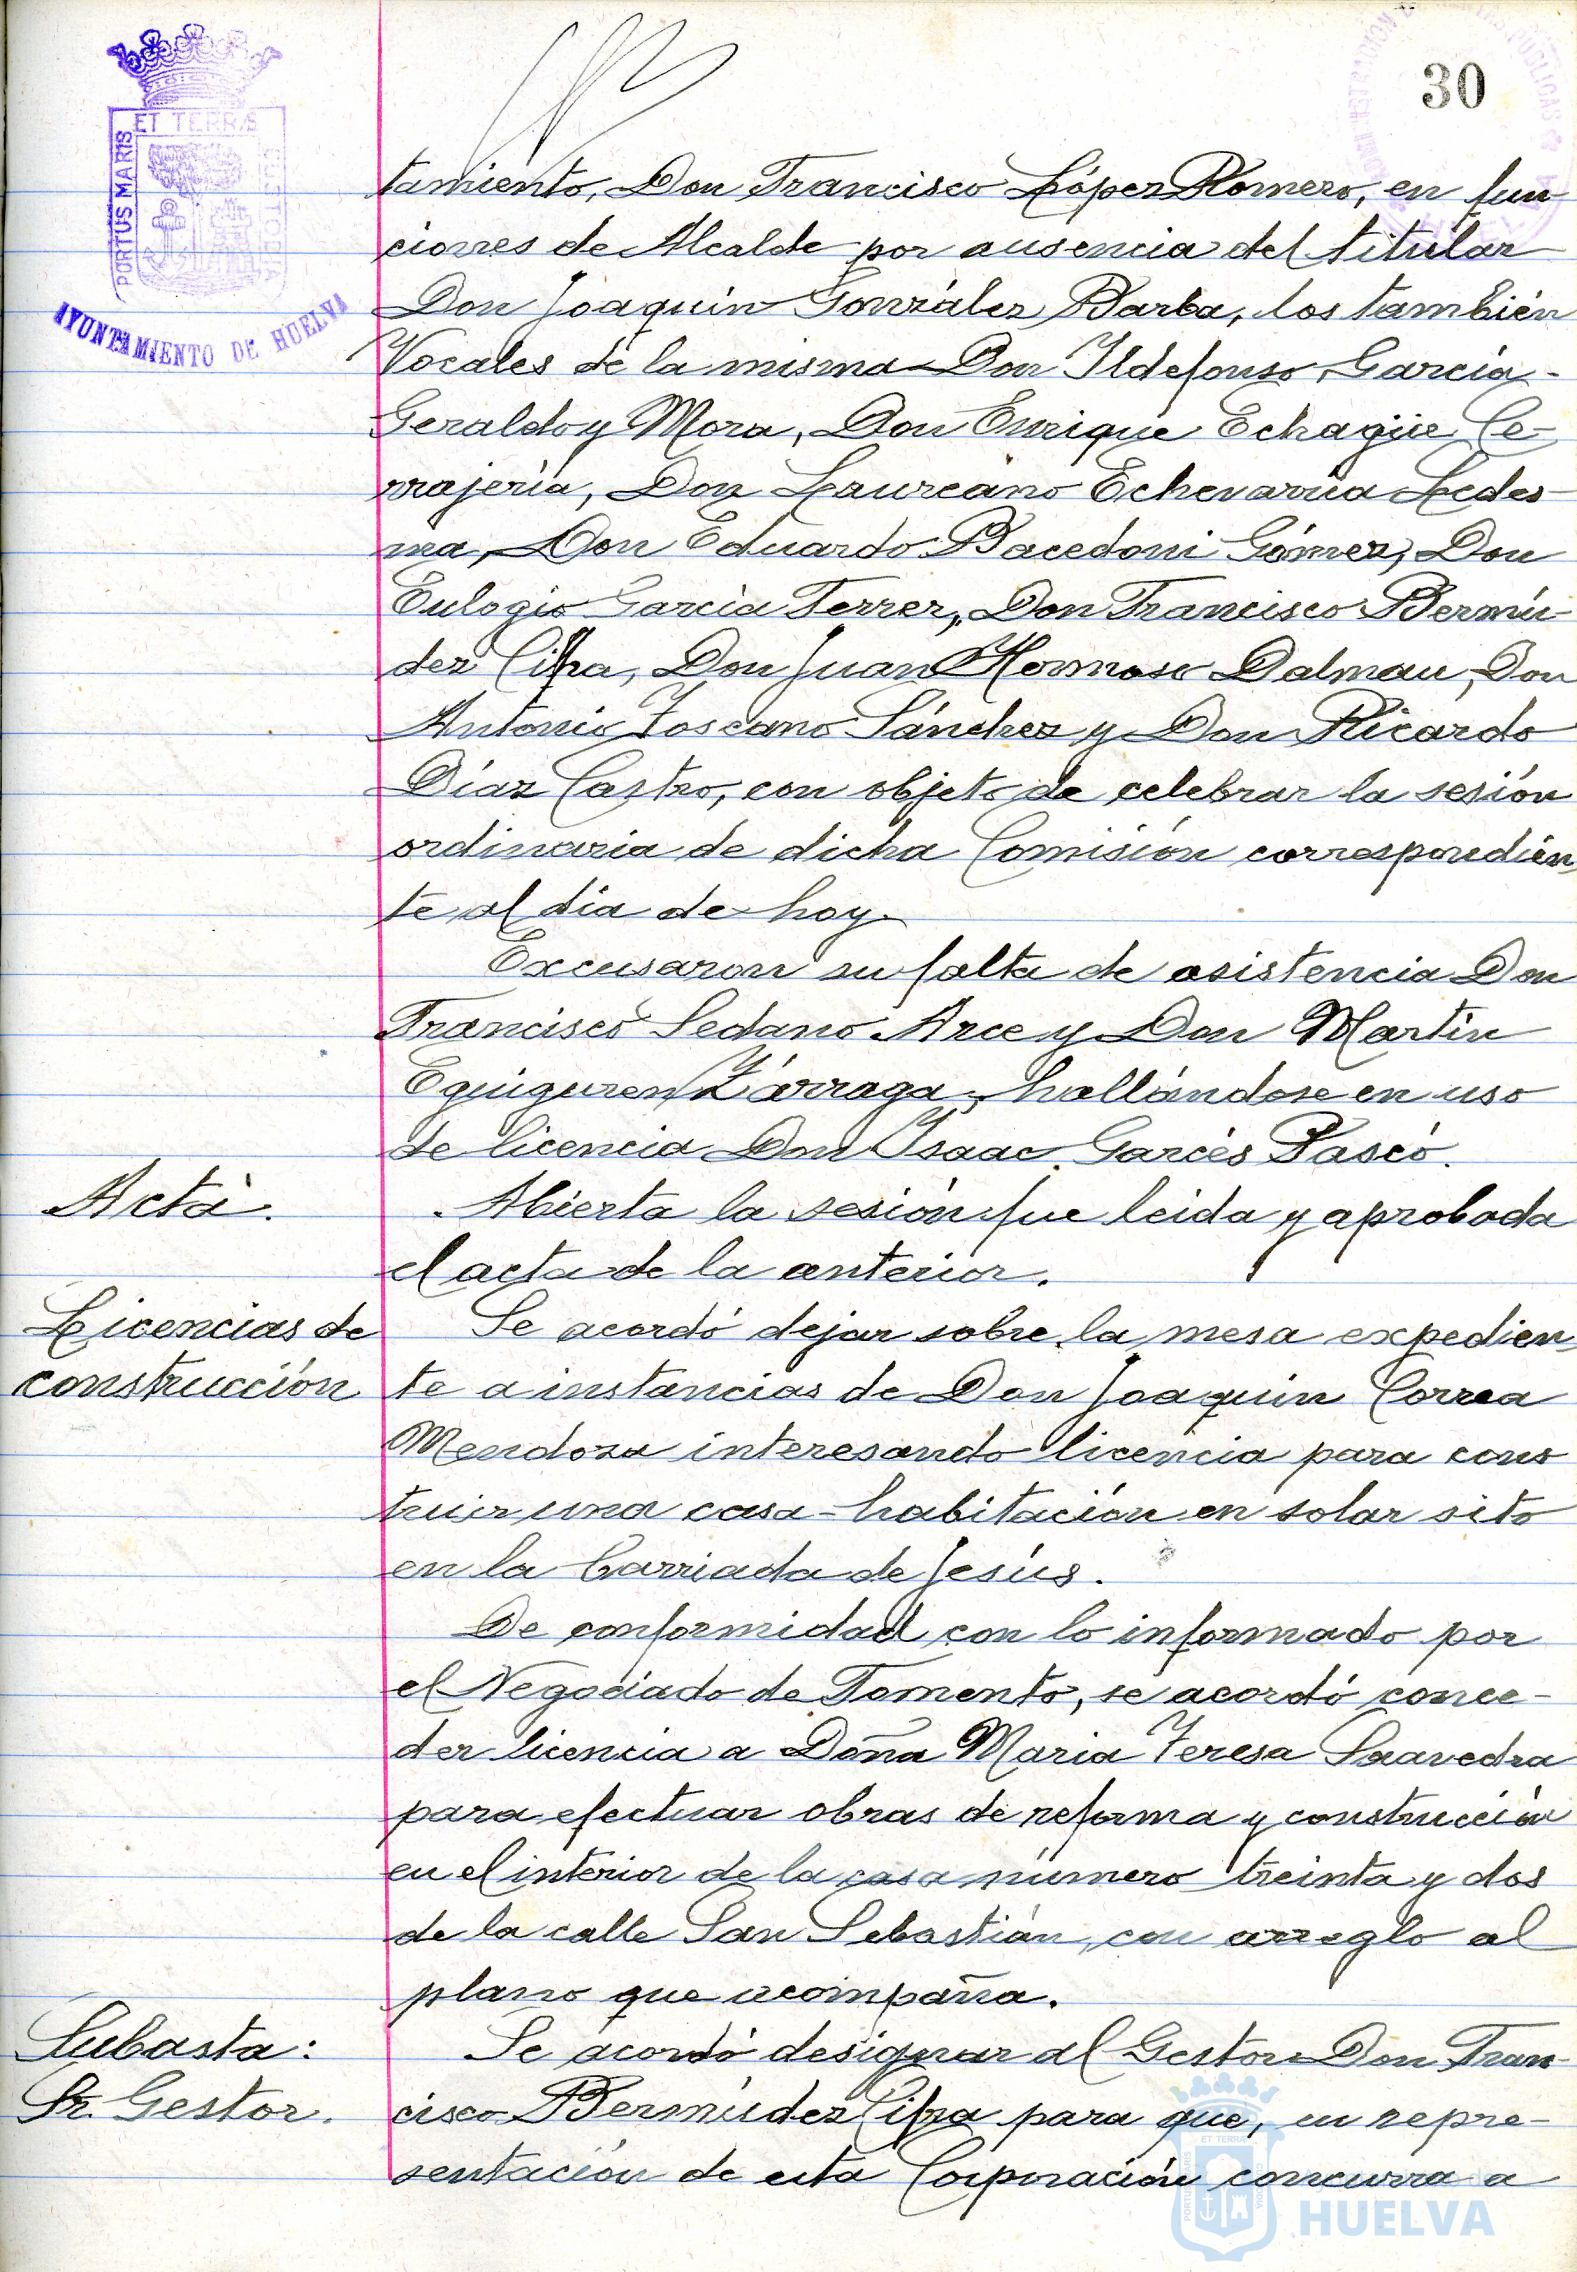 30
ET TERRIS
PORTUS MARIS
CUSTODIA
AYUNTAMIENTO DE HUELVA
tamiento, Don Francisco López Romero, en fun
ciones de Alcalde por ausencia del titular
Don Joaquín González Barba, los también
Vocales de la misma Don Ildefonso García-
Geraldo y Mora, Don Enrique Echagüe Ce-
rrajería, Don Laureano Echevarría Ledes-
ma, Don Eduardo Bacedoni Gómez, Don
Eulogio García Ferrer, Don Francisco Bermú
dez Cifra, Don Juan Hermoso Dalmau, Don
Antonio Toscano Sánchez y Don Ricardo
Díaz Castro, con objeto de celebrar la sesión
ordinaria de dicha Comisión correspondien
te al día de hoy.
Excusaron su falta de asistencia Don
Francisco Sedano Arce y Don Martín
Eguiguren Zárraga, hallándose en uso
de licencia Don Isaac Garcés Pascó.
Acta.
Abierta la sesión fue leida y aprobada
el acta de la anterior.
Licencias de
construcción
Se acordó dejar sobre la mesa expedien
te a instancias de Don Joaquín Correa
Mendoza interesando licencia para cons
truir una casa-habitación en solar sito
en la barriada de Jesús.
De conformidad con lo informado por
el Negociado de Fomento, se acordó conce-
der licencia a Doña Maria Teresa Saavedra
para efectuar obras de reforma y construcción
en el interior de la casa número treinta y dos
de la calle San Sebastián, con arreglo al
plano que acompaña.
Subasta:
Sr. Gestor.
Se acordó designar al Gestor Don Fran-
cisco Bermúdez Cifra para que, en repre-
sentación de esta Corporación concurra a
HUELVA